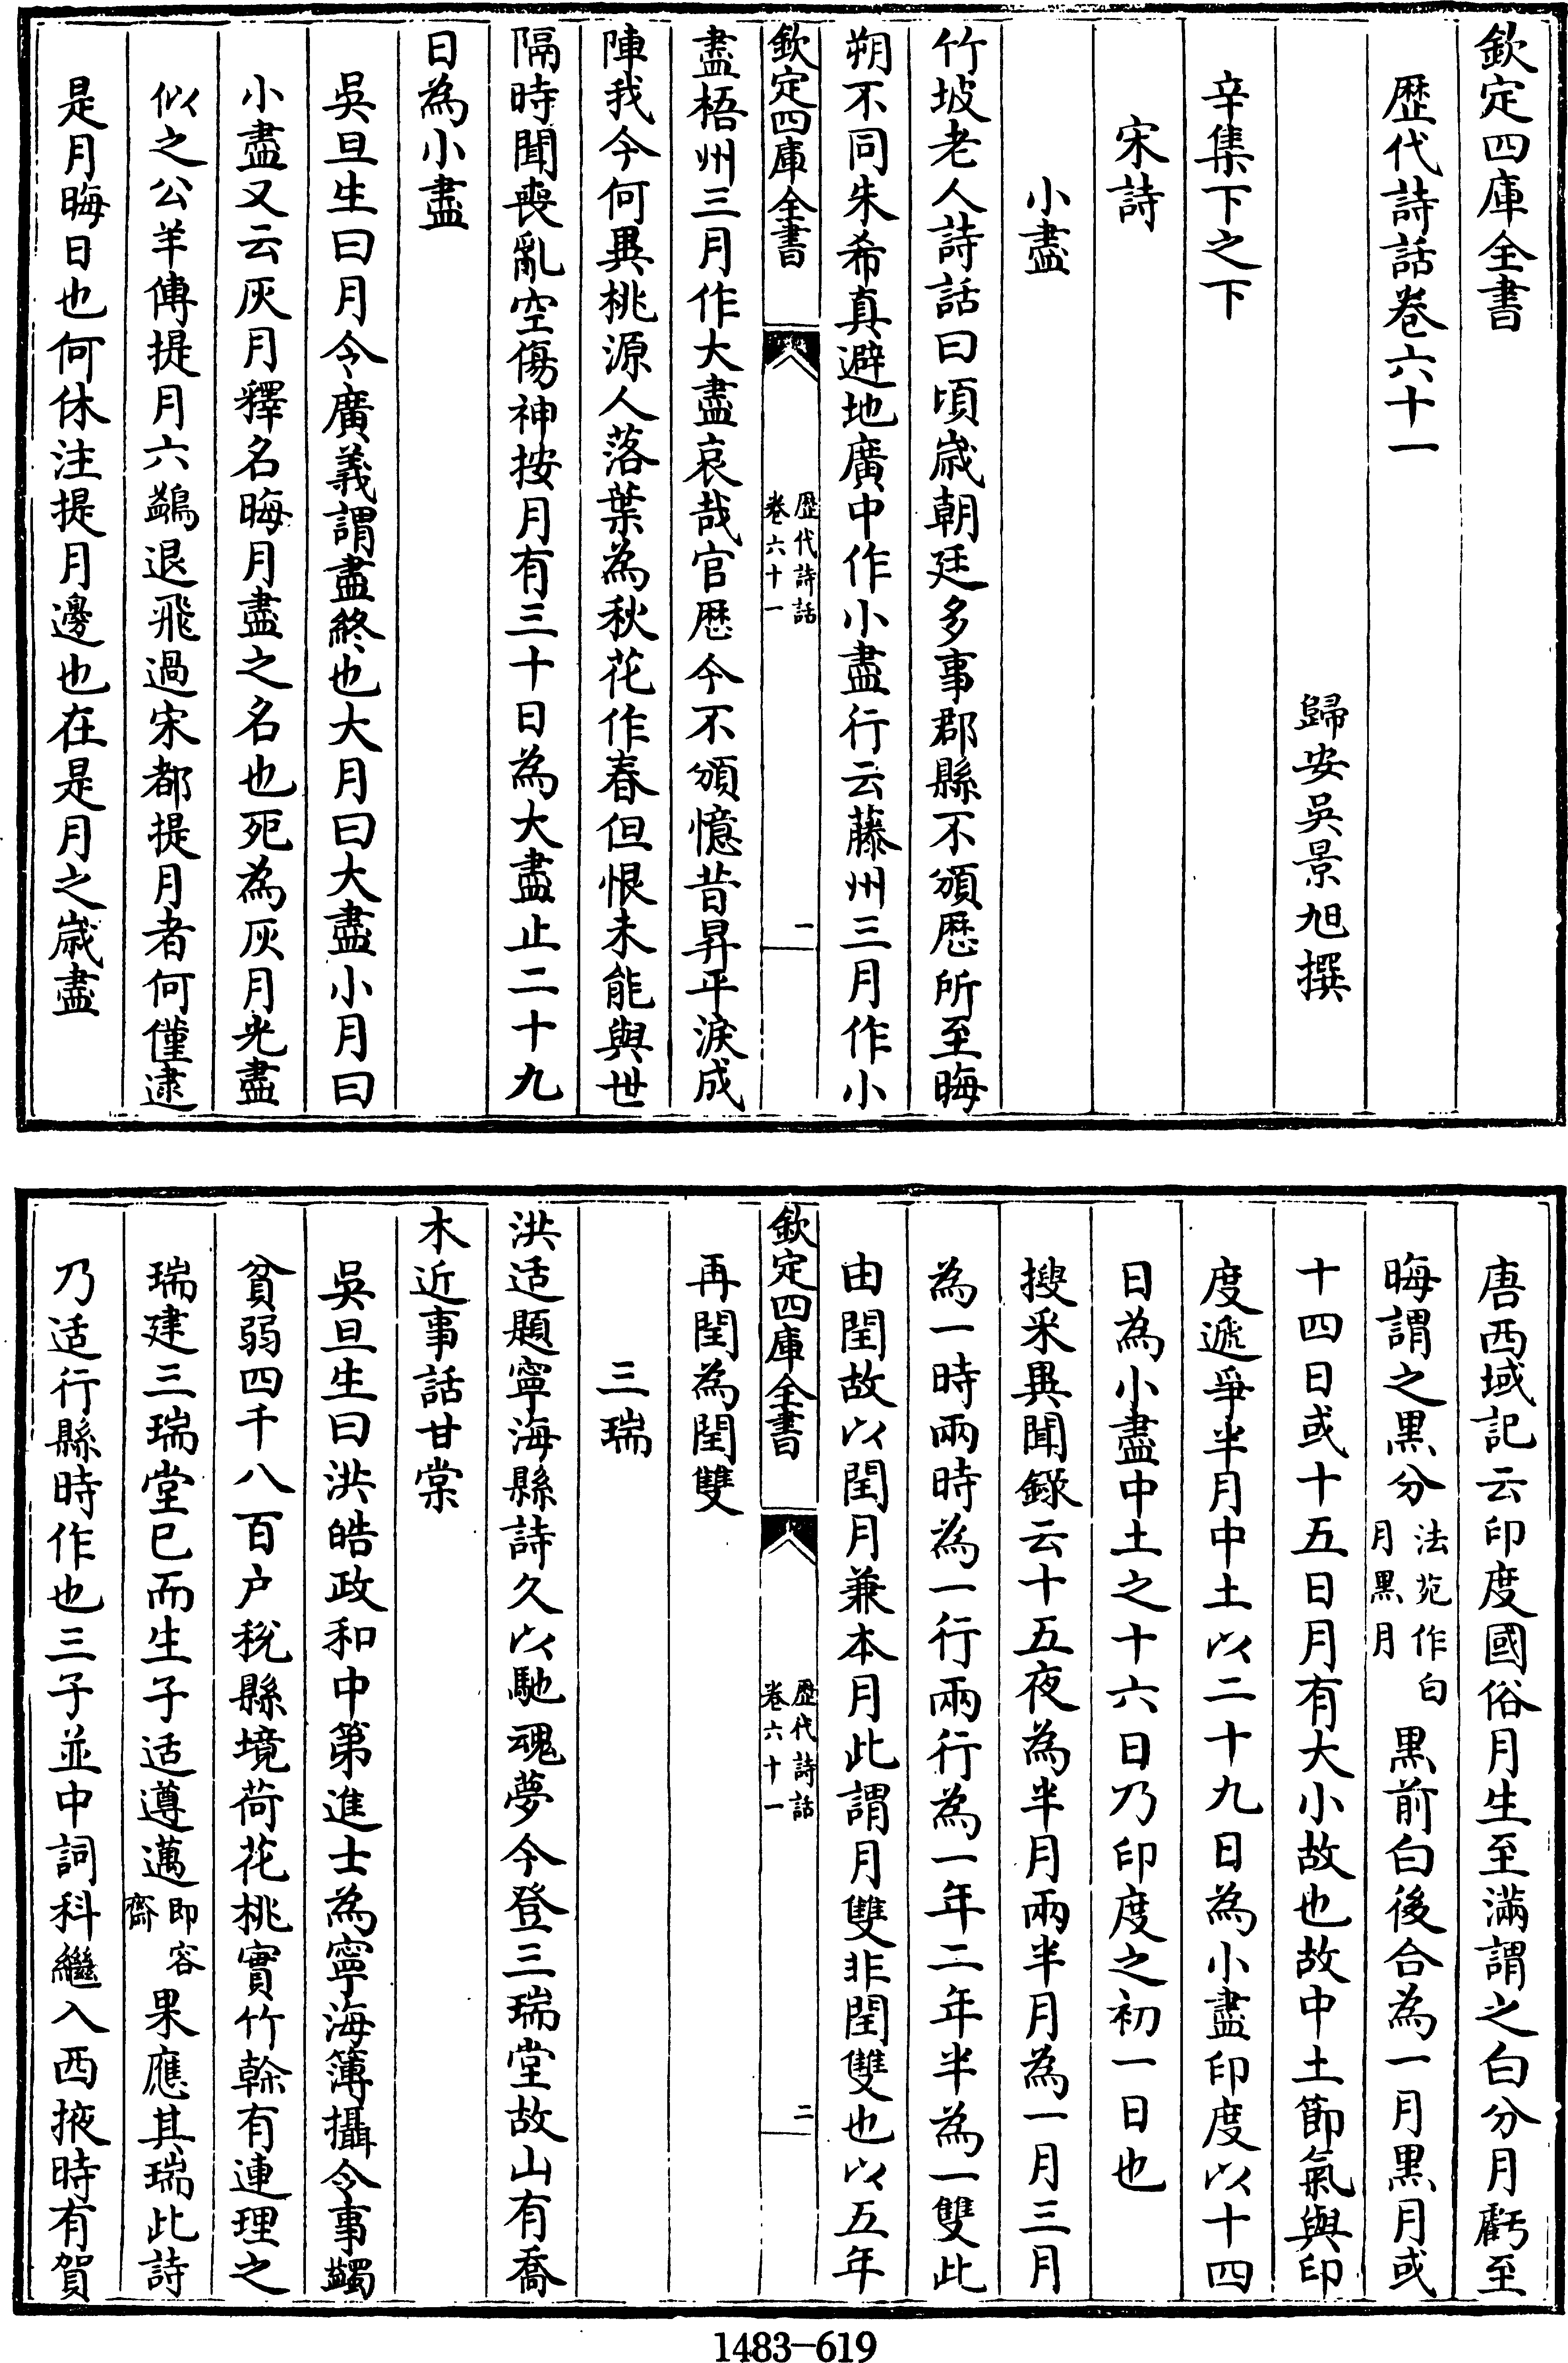 欽定四庫全書
歴代詩話卷六十一
歸安吳景旭撰
辛集下之下
宋詩
小盡
竹坡老人詩話曰頃歳朝廷多事郡縣不頒厯所至晦
朔不同朱希真避地廣中作小盡行云藤州三月作小
欽定四庫全書
歴代詩話
卷六十一
一
盡梧州三月作大盡哀哉官厯今不頒憶昔昇平淚成
陣我今何異桃源人落葉為秋花作春但恨未能與世
隔時聞喪亂空傷神按月有三十日為大盡止二十九
日為小盡
吳旦生曰月令廣義謂盡終也大月曰大盡小月曰
小盡又云灰月釋名晦月盡之名也死為灰月光盡
似之公羊傳提月六鷁退飛過宋都提月者何僅逮
是月晦日也何休注提月邊也在是月之歳盡
唐西域記云印度國俗月生至滿謂之白分月虧至
晦謂之黒分法苑作白月黒月黒前白後合為一月黒月或
十四日或十五日月有大小故也故中土節氣與印
度遞爭半月中土以二十九日為小盡印度以十四
日為小盡中土之十六日乃印度之初一日也
搜采異聞錄云十五夜為半月兩半月為一月三月
為一時兩時為一行兩行為一年二年半為一雙此
由閏故以閏月兼本月此謂月雙非閏雙也以五年
欽定四庫全書
歴代詩話
卷六十一
二
再閏為閏雙
三瑞
洪适題寧海縣詩久以馳魂夢今登三瑞堂故山有喬
木近事話甘棠
吳旦生曰洪皓政和中第進士為寧海簿攝令事蠲
貧弱四千八百户税縣境荷花桃實竹榦有連理之
瑞建三瑞堂已而生子适遵邁即容齋果應其瑞此詩
乃适行縣時作也三子並中詞科繼入西掖時有賀
1483-619